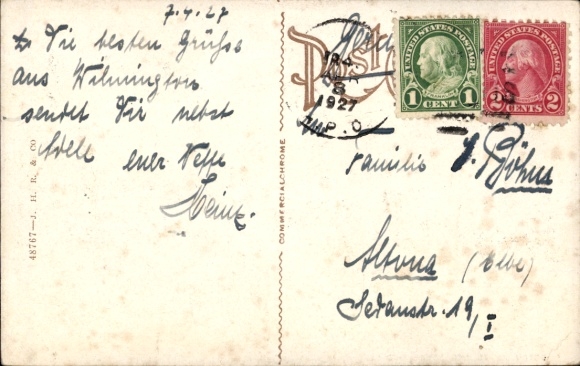 7.4.27
Die besten Grüsse
aus Wilmington
sendet Dir nebst
Adele euer Neffe
Heinz.
48767—J. H. R. & CO
COMMERCIALCHROME
Post
1927
UNITED STATES POSTAGE
1 CENT 1
UNITED STATES POSTAGE
2 CENTS 2
Familie J. Böhm
Altona (Elbe)
Sedanstr. 19/I